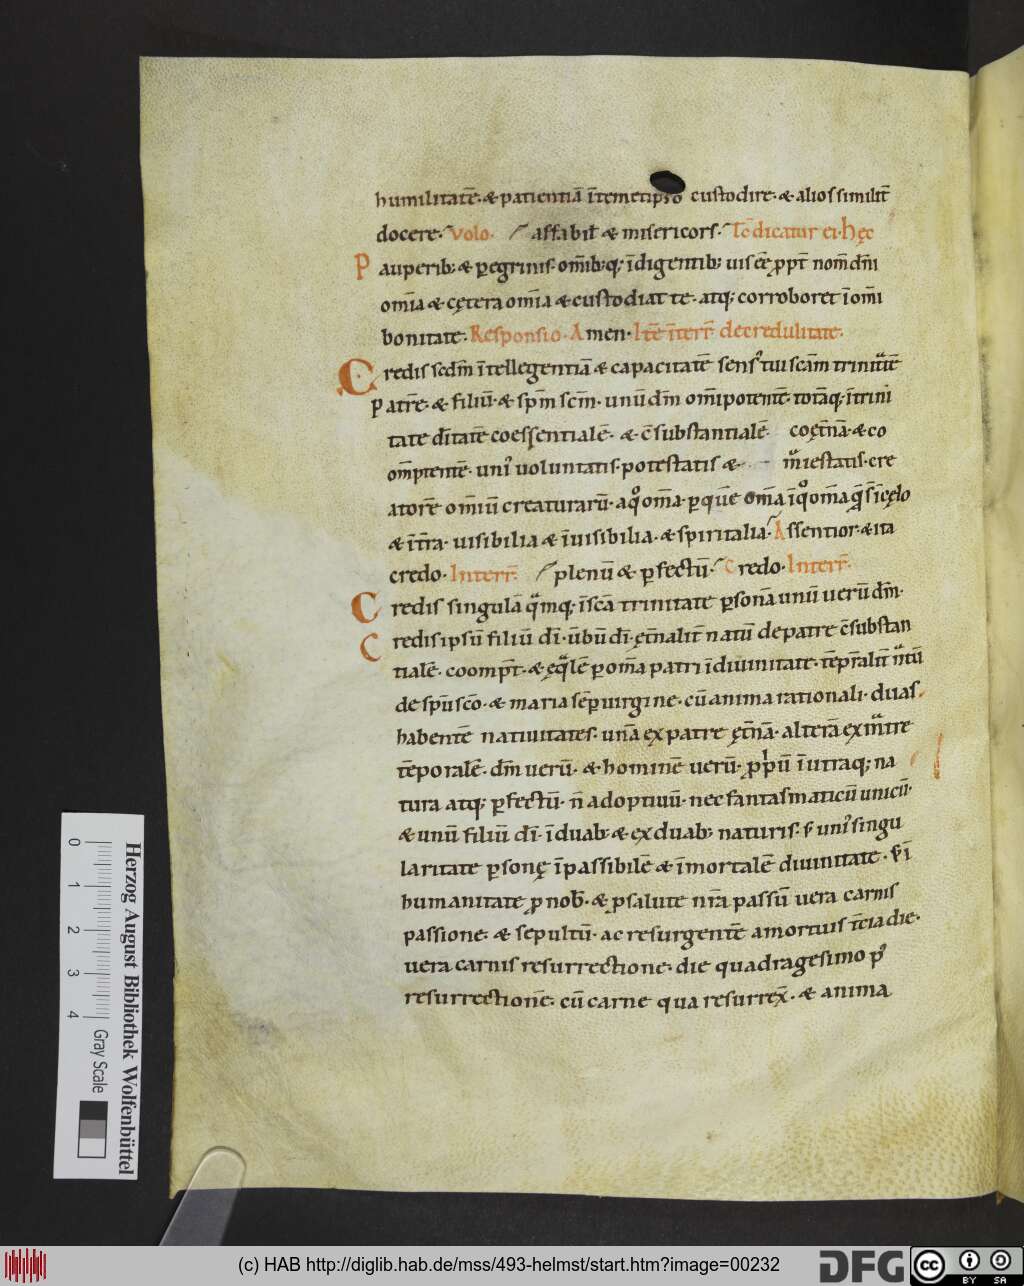 humilitatē· & patientiā ītemetipso custodire· & alios similit̄
docere· Volo· affabil̄ & misericors· Tc̄ dicatur ei· hęc
Pauperib; & ꝑegrinis· om̄ib;q; īdigentib; uis eē ꝓpt̄ nom̄ dn̄i
om̄ia & cętera om̄ia & custodiat te· atq; corroboret ī om̄i
bonitate· Responsio· Amen· Itē īterr̄ de credulitate·
Credis scdm̄ ītellegentiā & capacitatē sens' tui scām trinitatē
Patrē· & filiū· & sp̄m sc̄m· unū dm̄ om̄ipotentē· totāq; ī trini
tate dītatē coessentialē· & c̄substantialē· coęt̄nā· & co
om̄ptentē· uni' uoluntatis· potestatis & maiestatis· cre
atorē om̄iū creaturarū· a quo om̄a· ꝑ quē om̄a ī quo om̄a quę s̄ ī cęlo
& ī t̄ra· uisibilia & īuisibilia· & spiritalia· Assentior· & ita
credo· Interr̄· plenū & ꝑfectū· Credo· Interr̄·
Credis singulā quāmq; ī scā trinitate ꝑsonā unū uerū dm̄·
Credis ipsū filiū dī· ūbū dī· ęt̄nalit̄ natū de patre c̄substan
tialē· coomp̄t· & ęqualē ꝑ om̄a patri ī diuinitate· tēpr̄alit̄ natū
de spū sc̄o· & maria sēꝑ uirgine· cū anima rationali· duas
habentē natiuitates· unā ex patre ęt̄nā· alterā ex matre
tēporalē· dm̄ uerū· & hominē uerū· ꝓpriū ī utraq; na
tura atq; ꝑfectū· n̄ adoptiuū· nec fantasmaticū unicū·
& unū filiū dī· ī duab; & ex duab; naturis· s; uni' singu
laritate ꝑsonę īpassibilē & īmortalē diuinitate· s; ī
humanitate ꝓ nob̄· & ꝓ salute nr̄a passū uera carnis
passione· & sepultū· ac resurgentē a mortuis t̄cia die·
uera carnis resurrectione· die quadragesimo p'
resurrectionē· cū carne qua resurrex̄· & anima
0 1 2 3 4
Herzog August Bibliothek Wolfenbüttel
Gray Scale
(c) HAB http://diglib.hab.de/mss/493-helmst/start.htm?image=00232
DFG
cc BY SA